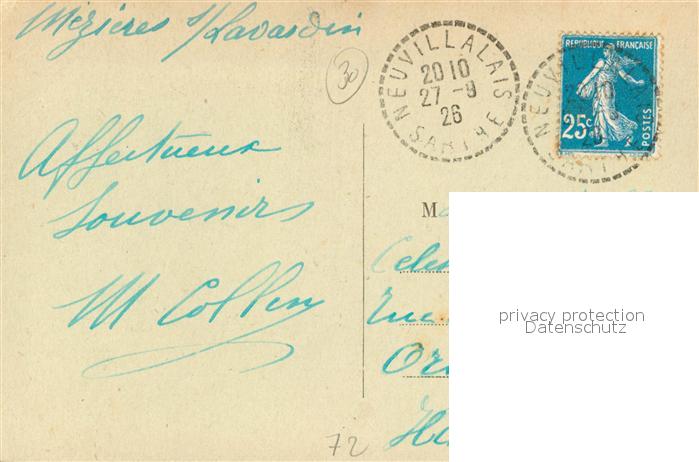 Mézières s/Lavardin
30
NEUVILLALAIS
20 10
27 - 9
26
SARTHE
REPUBLIQUE FRANÇAISE
25c
POSTES
Affectueux
Souvenirs
M Collin
M
Rue
72
privacy protection
Datenschutz